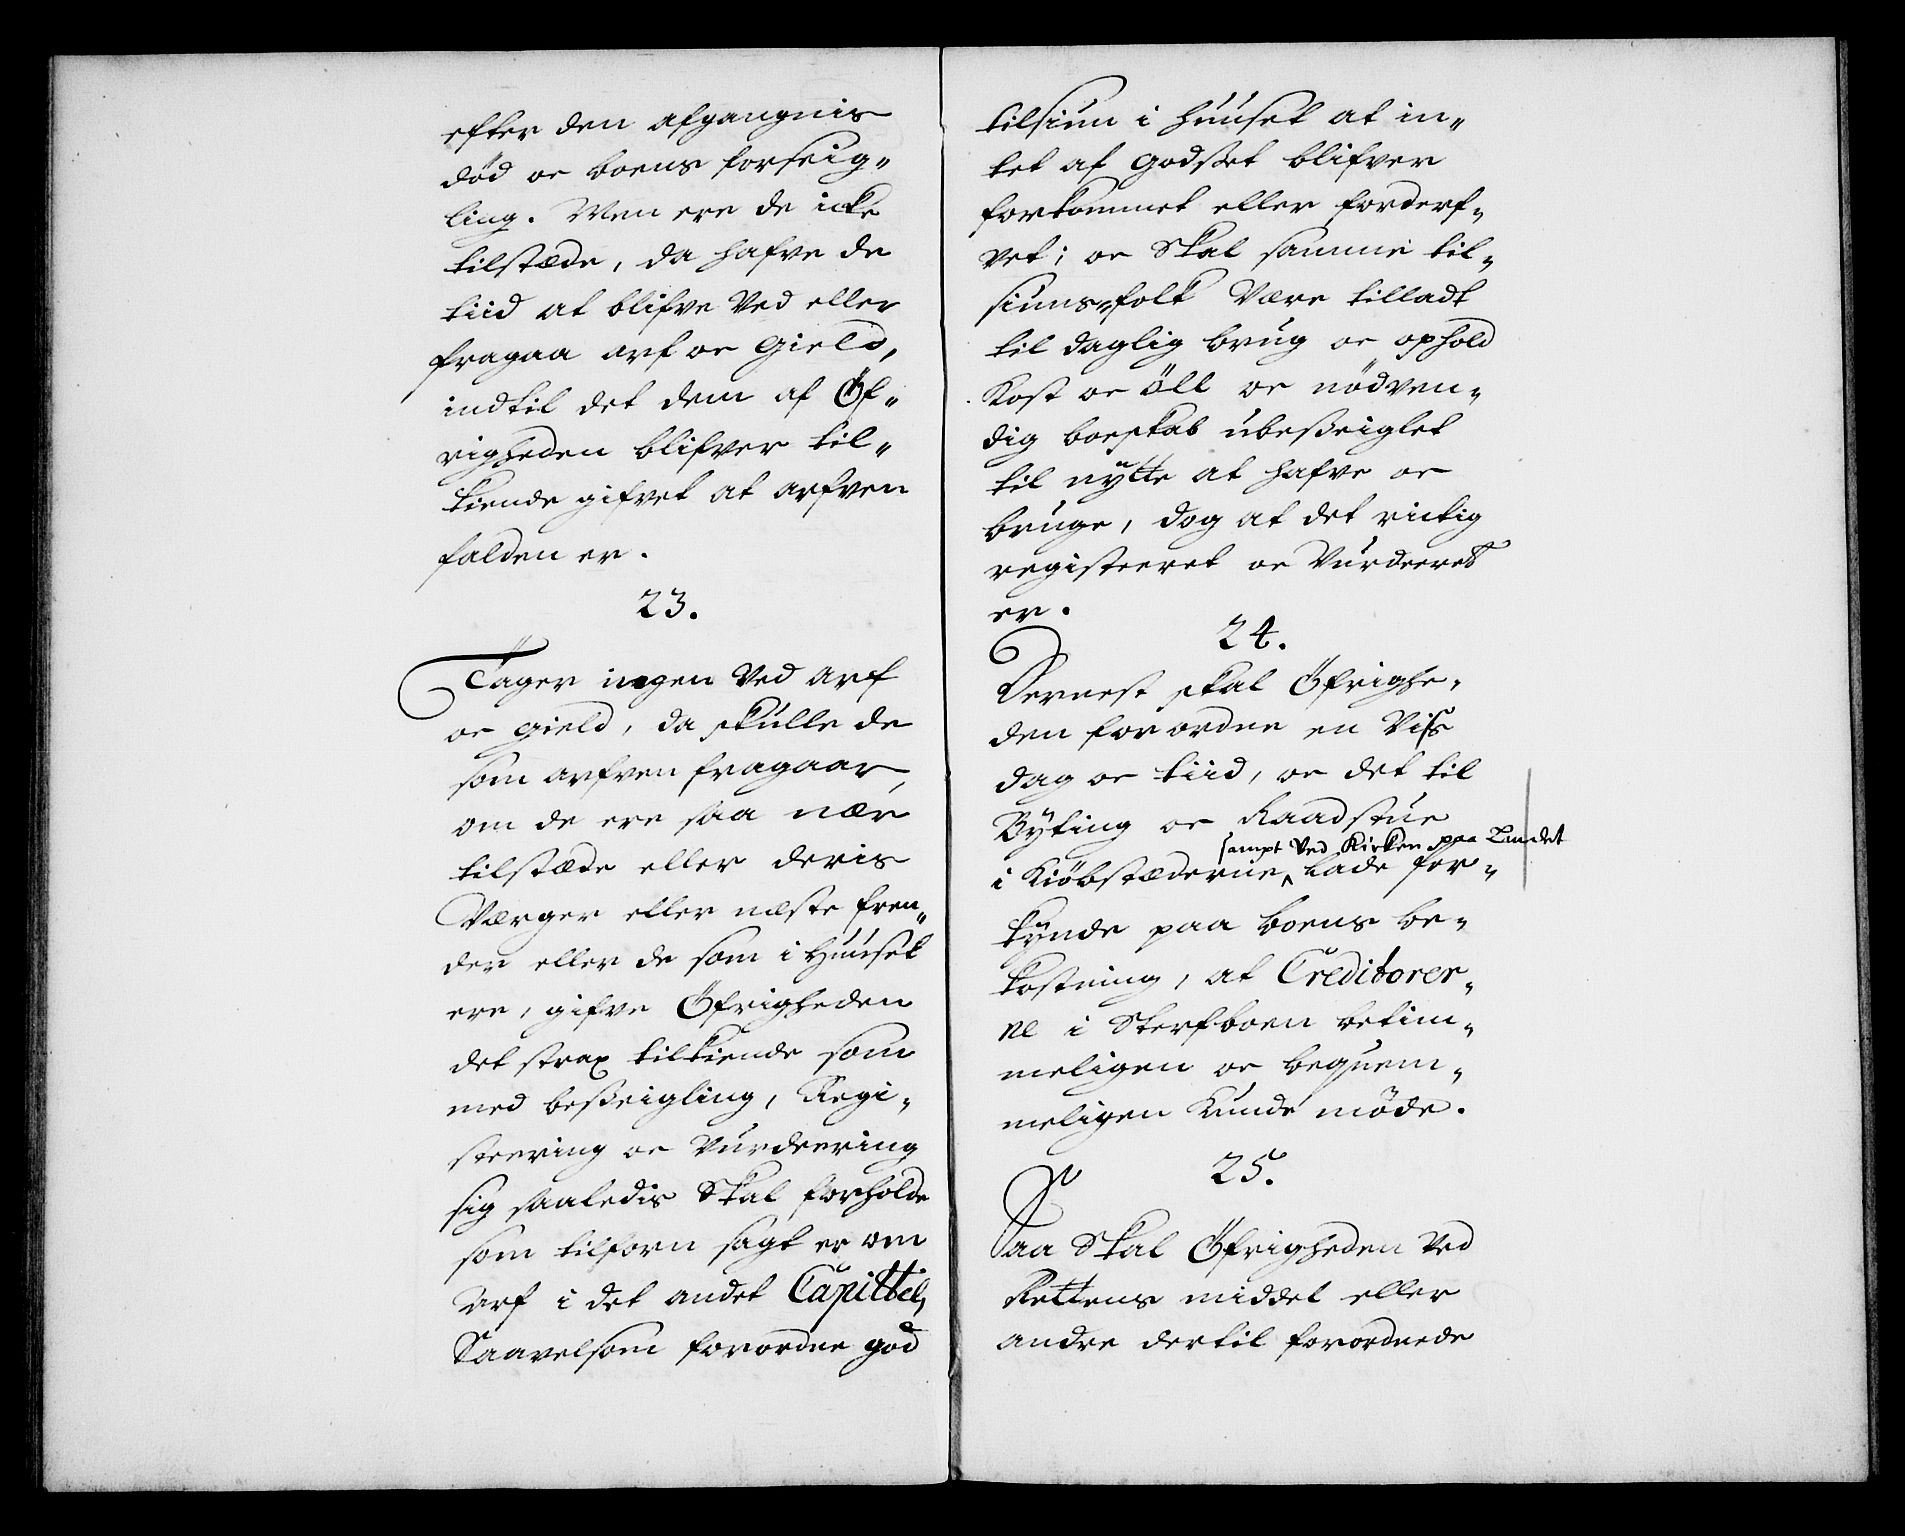 efter den afgangnis
död oc boens forseig„
ling. Men ere de icke
tilstæde, da hafve de
tiid at blifve ved eller
fragaa arf oc gield,
indtil det dem af Öf„
righeden blifver til„
kiende gifvet at arfven
falden er.
23.
Tager ingen ved arf
oc gield, da skulle de
som arfven fragaar,
om de ere saa nær
tilstæde eller deris
Værger eller næste fren„
der eller de som i Huuset
ere, gifve Öfrigheden
det strax tilkiende som
med beßeigling, Regi„
steering oc Vurdeering
sig saaledis Skal forholde
som tilforn sagt er om
Arf i det andet Capittel,
Saavelsom forordne god
tilsiun i huuset at in„
tet af godset blifver
forkommet eller forderf„
vet; oc Skal samme til„
siuns„folk Være tilladt
til daglig brug oc ophold
Kost oc öll oc nödven„
dig boeskab ubeßeiglet
til nytte at hafve oc
bruge, dog at det rictig
registeeret oc Vurdeeret
er.
24.
Dernest skal Öfrighe„
den forordne en Viss
dag oc tiid, oc det til
Byting oc Raadstue
sampt Ved Kirken paa Landet
i Kiöbstæderne, lade for„
kynde paa boens be„
kostning, at Creditorer„
ne i Sterfboen betim„
meligen oc bequem„
meligen kunde möde.
25.
Saa Skal Öfrigheden Ved
Rettens middel eller
andre dertil forordnede